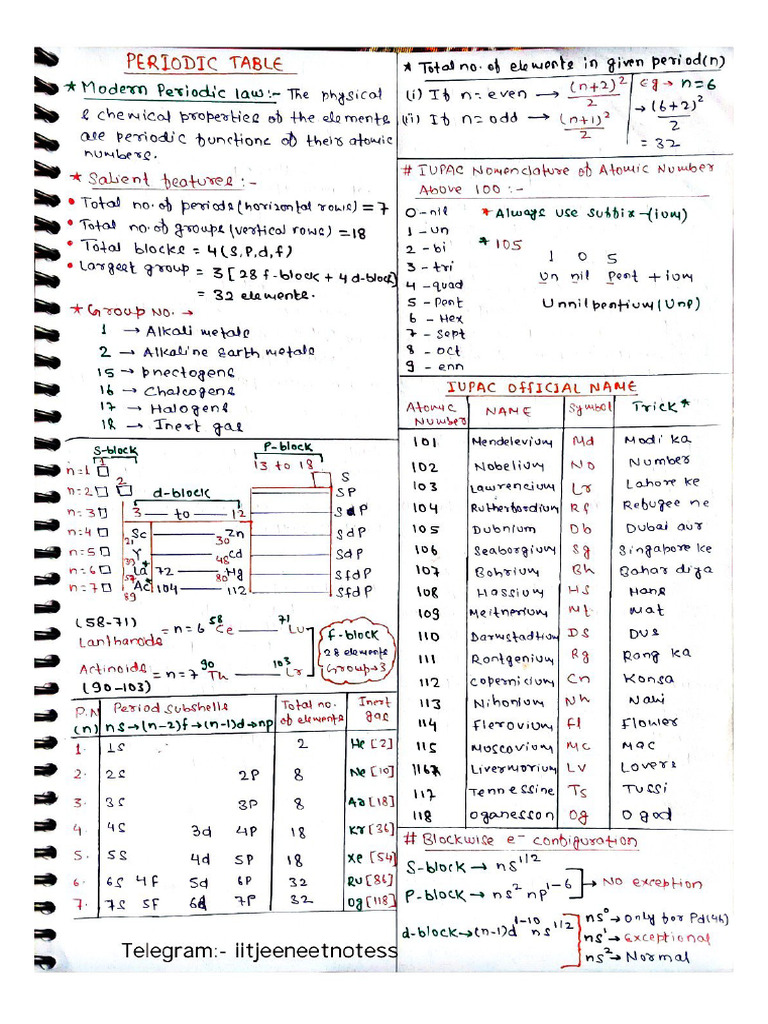 PERIODIC TABLE
* Modern Periodic law:- The physical
& chemical properties of the elements
are periodic functions of their atomic
numbers.
* Salient features :-
• Total no. of periods (horizontal rows) = 7
• Total no. of groups (vertical rows) = 18
• Total blocks = 4 (S, P, d, f)
• Largest group = 3 [28 f-block + 4 d-block]
= 32 elements.
* Group No. →
1 → Alkali metals
2 → Alkaline Earth metals
15 → pnectogens
16 → Chalcogens
17 → Halogens
18 → Inert gas
S-block
P-block
1
13 to 18
n=1
S
2
n=2
d-block
SP
n=3
3 — to — 12
SdP
n=4
Sc 21
Zn 30
SdP
n=5
Y 39
Cd 48
SdP
n=6
La* 57
72 — Hg 80
SfdP
n=7
Ac* 89
104 — 112
SfdP
(58-71)
Lanthanoids = n=6 58 Ce — 71 Lu
f-block
28 elements
Group→3
Actinoids = n=7 90 Th — 103 Lr
(90-103)
P.N (n) | Period Subshells ns→(n-2)f→(n-1)d→np | Total no. of elements | Inert gas
1. 1S 2 He [2]
2. 2S 2P 8 Ne [10]
3. 3S 3P 8 Ar [18]
4. 4S 3d 4P 18 Kr [36]
5. 5S 4d 5P 18 Xe [54]
6. 6S 4f 5d 6P 32 Ru [86]
7. 7S 5f 6d 7P 32 Og [118]
Telegram:- iitjeeneetnotess
* Total no. of elements in given period (n)
(i) If n = even → (n+2)²/2
(ii) If n = odd → (n+1)²/2
Eg → n = 6
→ (6+2)²/2
= 32
# IUPAC Nomenclature of Atomic Number
Above 100 :-
0 - nil
* Always use suffix - (ium)
1 - un
2 - bi
* 105
3 - tri
1 0 5
4 - quad
Un nil pent + ium
5 - pent
Unnilpentium (Unp)
6 - Hex
7 - Sept
8 - oct
9 - enn
IUPAC OFFICIAL NAME
Atomic Number | NAME | Symbol | Trick*
101 Mendelevium Md Modi ka
102 Nobelium No Number
103 Lawrencium Lr Lahore ke
104 Rutherfordium Rf Refugee ne
105 Dubnium Db Dubai aur
106 Seaborgium Sg Singapore ke
107 Bohrium Bh Bahar diya
108 Hassium HS Hans
109 Meitnerium Mt Mat
110 Darmstadtium DS Dus
111 Rontgenium Rg Rang ka
112 Copernicium Cn Konsa
113 Nihonium Nh Nahi
114 Flerovium Fl Flower
115 Moscovium Mc Mac
116 Livermorium Lv Lovers
117 Tennessine Ts Tussi
118 Oganesson Og O god
# Blockwise e⁻ configuration
S-block → ns¹/²
P-block → ns² np¹⁻⁶
→ No exception
d-block → (n-1)d¹⁻¹⁰ ns¹/²
ns⁰ → only for Pd (46)
ns¹ → Exceptional
ns² → Normal